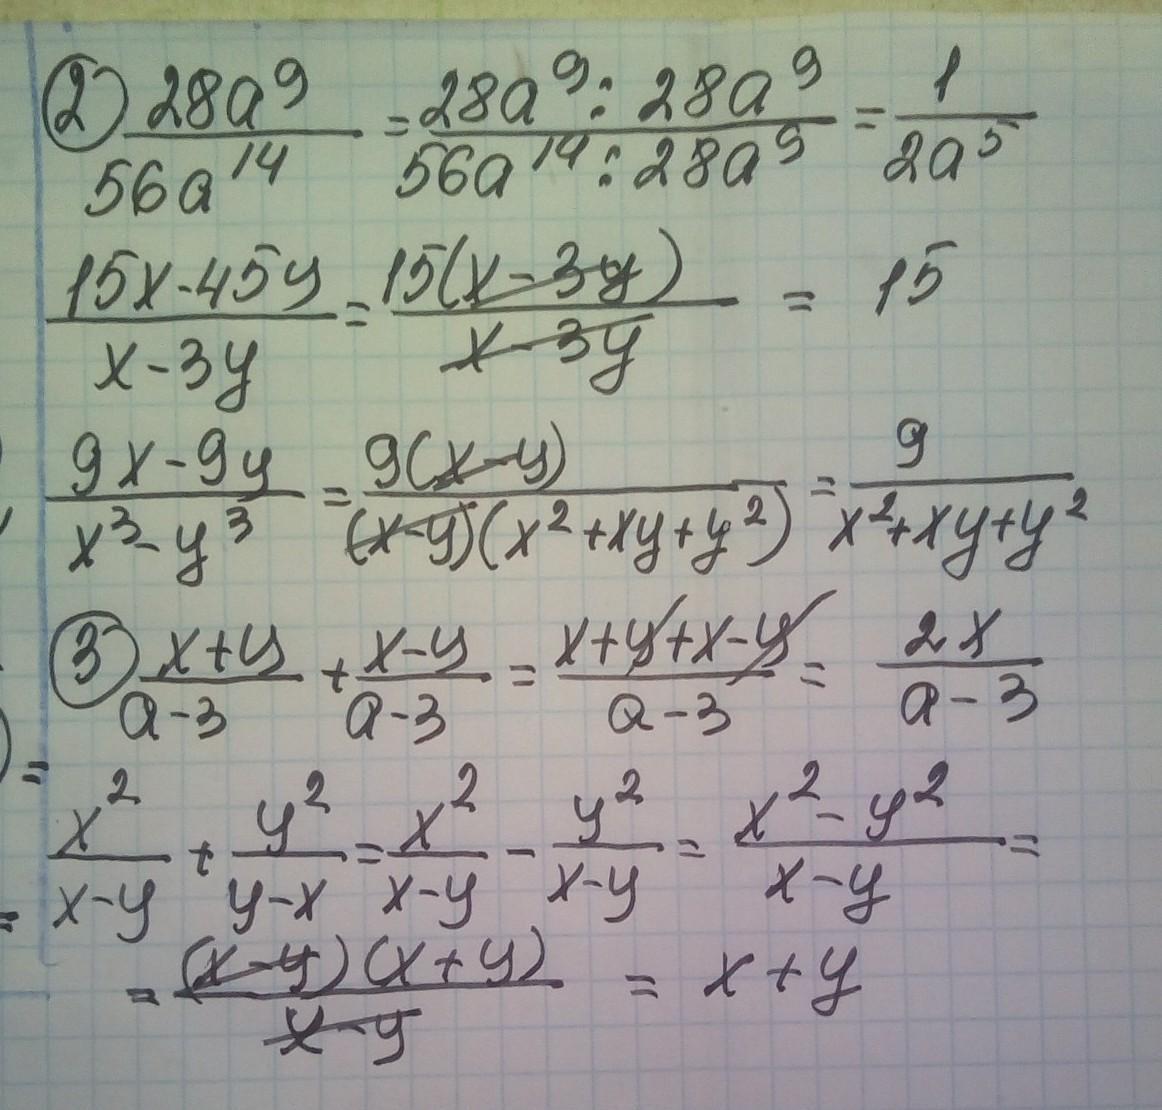 ② 28a⁹/56a¹⁴ = 28a⁹ : 28a⁹/56a¹⁴ : 28a⁹ = 1/2a⁵
15x-45y/x-3y = 15(x-3y)/x-3y = 15
9x-9y/x³-y³ = 9(x-y)/(x-y)(x²+xy+y²) = 9/x²+xy+y²
③ x+y/a-3 + x-y/a-3 = x+y+x-y/a-3 = 2x/a-3
=
x²/x-y + y²/y-x = x²/x-y - y²/x-y = x²-y²/x-y =
= (x-y)(x+y)/x-y = x+y